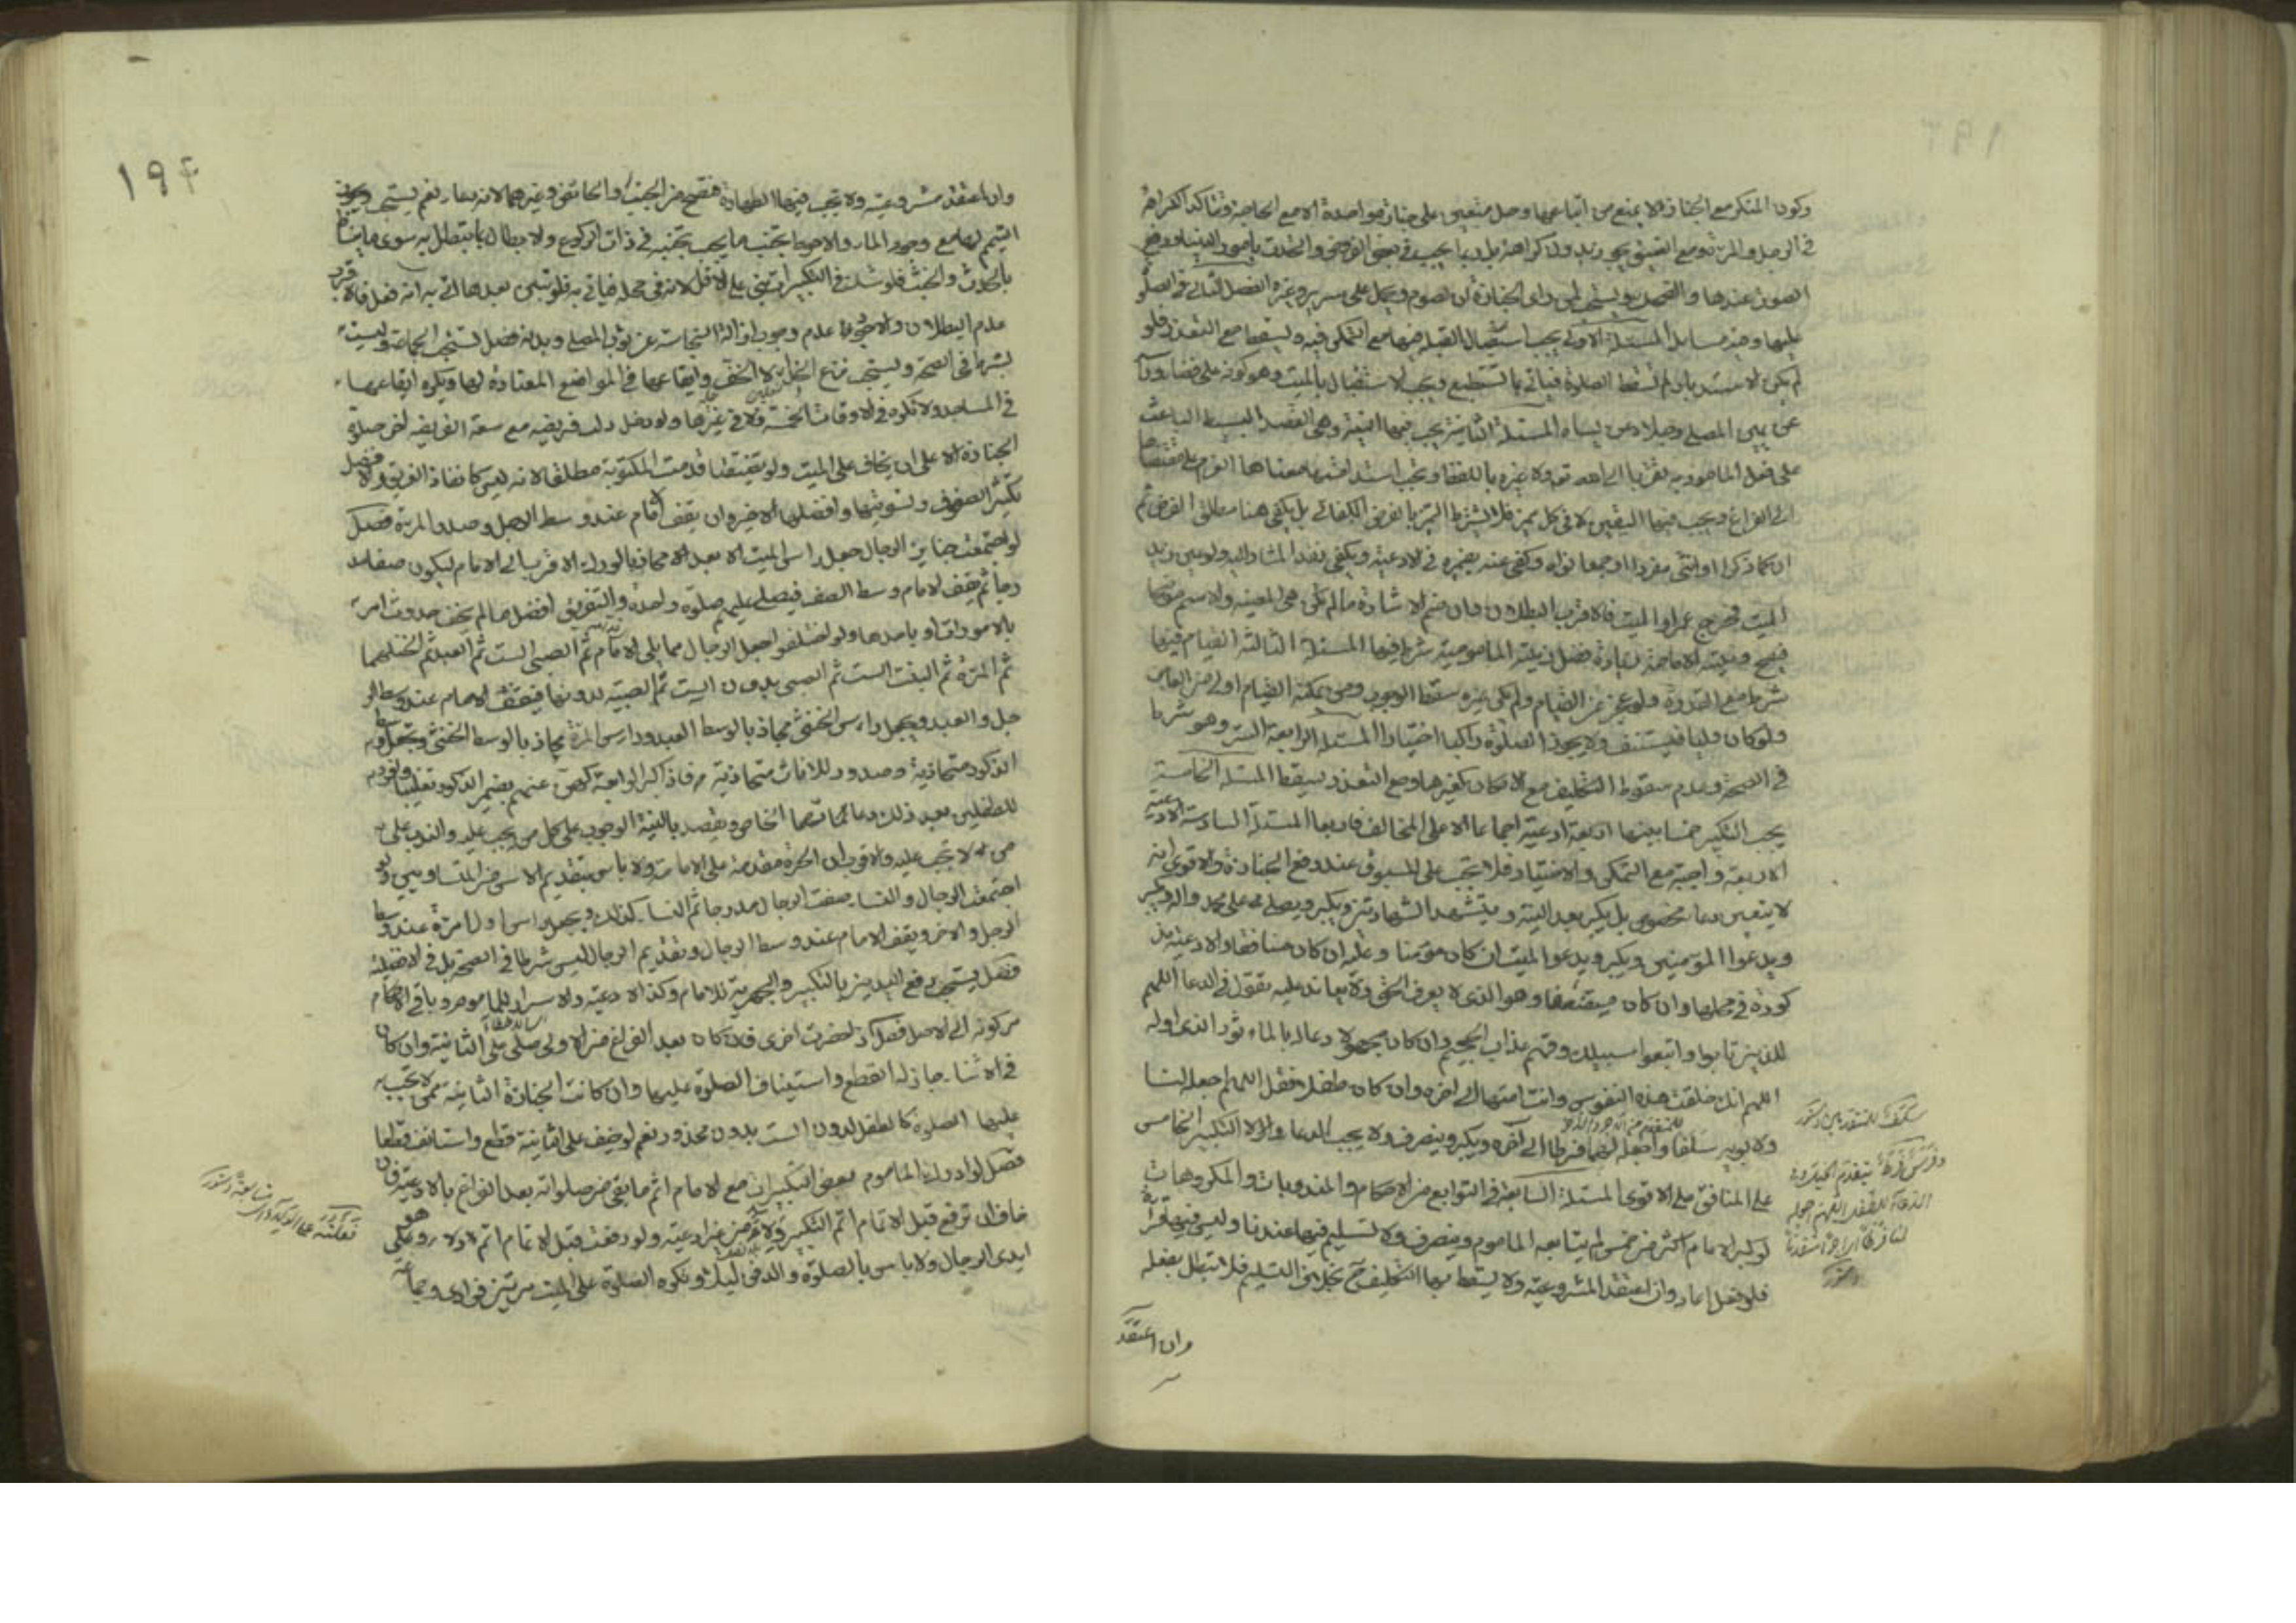 وكون المنكر مع الجنازة لا يمنع من اتباعها وحمل متعين على جنازة واحدة الا مع الحاجة وتتأكد الكراهة
في الرجل والمرأة ومع الضيق يجوز بدون كراهة بل ربما يجب في بعض الفروض والتحدث بامور الدنيا ورفع
الصوت عندها والضحك ويستحب لمن راى الجنازة ان يقوم ويحمل على سرير وغيره الفصل الثاني في الصلوة
عليها وفيه مسائل المسئلة الاولى يجب استقبال القبلة فيها مع التمكن فيه ويسقط مع التعذر فلو
لم يكن الاستدبار لم تسقط الصلوة فياتي بما يستطيع ويجب الاستقبال بالميت وهو كونه على قفا وراسه
عن يمين المصلي ورجلاه عن يساره المسئلة الثانية يجب فيها النية وهي القصد البسيط الباعث
على فعل المامور به تقربا الى الله تعالى ولا عبرة باللفظ ويجب استدامتها ومعناها العزم على مقتضاها
الى الفراغ ويجب فيها التعيين لا في كل مميز فلا يشترط التميز بالفرض الكفائي بل يكفي هنا مطلق الفرض ثم
ان كان ذكرا او انثى مفردا او جمعا نواه وكفى عنه بضميره في الادعية ويكفي بقصد المشار اليه ولو عين زيد
الميت فخرج عمرا والميت فالاقرب البطلان فان ضم الاشارة ما لم تكن هي المعينة والاسم موضحا
فيصح ونية الامامة زيادة فضل ونية المامومية شرط فيها المسئلة الثالثة القيام فيها
شرط مع القدرة فلو عجز عن القيام ولم يكن غيره سقط الوجوب ومن يمكنه القيام اولى من العاجز
ولو كان وليا فيستنيب ولا يجوز الصلوة راكبا اختيارا المسئلة الرابعة الستر وهو شرط
في الصحة وعدم سقوط التكليف مع الامكان كغيرها ومع التعذر يسقط المسئلة الخامسة
يجب التكبير خمسا بينها اربعة ادعية اجماعا الا على المخالف فاربعا المسئلة السادسة الادعية
الاربعة واجبة مع التمكن والاختيار فلا تجب على المسبوق عند رفع الجنازة والاقوى انه
لا يتعين دعاء مخصوص بل يكبر بعد النية ويتشهد الشهادتين ويكبر ويصلي على محمد واله ويكبر
ويدعوا للمؤمنين ويكبر ويدعوا للميت ان كان مؤمنا وعليه ان كان منافقا والادعية مذ
كورة في محلها وان كان مستضعفا وهو الذي لا يعرف الحق ولا يعاند عليه يقول في الدعا اللهم
للذين تابوا واتبعوا سبيلك وقهم عذاب الجحيم وان كان مجهولا دعا له بالماثور الذي اوله
اللهم انك خلقت هذه النفوس وانت امتها الى اخره وان كان طفلا فقل اللهم اجعله لنا
ولابويه سلفا واجعله لهما فرطا الى آخره ويكبر وينصرف ولا يجب الدعا والا التكبير الخامس
على المنافق على الاقوى المسئلة السابعة في التوابع من الاحكام والمندوبات والمكروهات
لو كبر الامام اكثر من خمس لم يتابعه الماموم وينصرف ولا تسليم فيها عندنا وليس فيها قراءة
فلو فعل اعاد وان اعتقد المشروعية ولا يسقط بها التكليف ح بخلاف التسليم فلا تبطل بفعله
وان اعتقد
١٩٤
وان اعتقد مشروعيته ولا تجب فيها الطهارة فتصح من الجنب والحائض وغيرهما لانه دعاء نعم يستحب
التيمم لها مع وجود الماء والاحوط تجنب ما يجب تجنبه في ذات الركوع ولا ابطال بما تبطل به سوى
بالحدث والخبث فلو شك في التكبيرات بنى على الاقل لانه في محله فياتي به فلو تبين بعد ما اتى به انه فعل فالاقرب
عدم البطلان والاحوط عدم وجوب ازالة النجاسة عن ثوب المصلي وبدنه فصل تستحب الجماعة وليست
بشرط في الصحة ويستحب نزع النعلين لا الخف وايقاعها في المواضع المعتادة لها ويكره ايقاعها
في المساجد ولا تكره في الاوقات الخمسة ولا في غيرها ولو دخل وقت فريضة مع سعة الفريضة اخر صلوة
الجنازة الا على ان يخاف على الميت ولو تضيقتا قدمت المكتوبة مطلقا لانه ليس كانقاذ الغريق والافضل
تكثير الصفوف وتسويتها وافضلها الاخير وان يقف الامام عند وسط الرجل وصدر المرئة فصل
لو اجتمعت جنايز الرجال جعل راس الميت الابعد محاذيا لورك الاقرب الى الامام ليكون صفا مد
رجا ثم يقف الامام وسط الصف فيصلي عليهم صلوة واحدة والتفريق افضل ما لم يخف حدوث امر
بالاموات او باحدها ولو اختلفوا جعل الرجال مما يلي الامام ثم الصبي لست ثم العبد ثم الخنثى
ثم المرئة ثم البنت لست ثم الصبي بدون الست ثم الصبية لدونها فيقف الامام عند وسط الر
جل والعبد ويجعل راس الخنثى محاذيا لوسط العبد وراس المرئة محاذيا لوسط الخنثى
الذكور متحاذية وصدور للاناث متحاذية فاذا كبر الرابعة كنى عنهم بضمير الذكور تغليبا
للطفلين بعد ذلك دعائهما الخاص ويقصد بالنية الوجوب على كل من يجب عليه والندب على
من لا تجب عليه والاقرب ان الحرة مقدمة على الامة ولا باس بتقديم الاسن من المتساويين ولو
اجتمعت الرجال والنساء صفت الرجال مدرجا ثم النساء كذلك ويجعل راس اول امرئة عند وسط
الرجل والاخر ويقف الامام عند وسط الرجال وتقديم الرجال ليس شرطا في الصحة بل في الافضلية
فصل يستحب رفع اليدين بالتكبير والجهرية للامام وكذا الادعية والاسرار للماموم وباقي الاحكام
مركونة الى الاصل فصل اذا حضرت اخرى فان كان بعد الفراغ من الاولى صلى على الثانية وان كان
في الاثناء جاز له القطع واستيناف الصلوة عليهما وان كانت الجنازة الثانية ممن لا تجب
عليها الصلوة كالطفل لدون الست بدون محذور نعم لو خيف على الثانية قطع واستانف قطعا
فصل لو ادرك الماموم بعض التكبيرات مع الامام اتم ما بقي من صلواته بعد الفراغ بالادعية فان
خاف ان ترفع قبل الاتمام اتم التكبير ولاء من غير ادعية ولو رفعت قبل الاتمام اتم ولاء ولو على
ايدي الرجال ولا باس بالصلوة والدفن ليلا وتكره الصلوة على الميت مرتين فرادى وجماعة